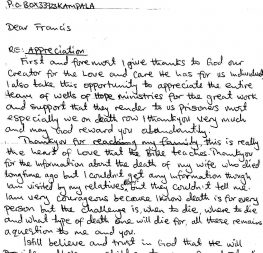 P.O. BOX 33123 KAMPALA
Dear Francis
RE: Appreciation
First and foremost I give thanks to God our
Creator for the Love and Care He has for us individual
I also take this opportunity to appreciate the entire
team of wells of Hope ministries for the great work
and support that they render to us prisoners most
especially we on death row I thank you very much
and may God reward you abundantly.
Thankyou for reaching my family, this is really
the heart of love that the Bible teaches. Thankyou
for the information about the death of my wife who died
longtime ago but I couldn't get any information though
Iam visited by my relatives, but they couldn't tell me.
Iam very courageous because I know death is for every
person but the challenge is, when to die, where to die
and what type of death one will die for, all these remains
a question to me and you.
I still believe and trust in God that He will